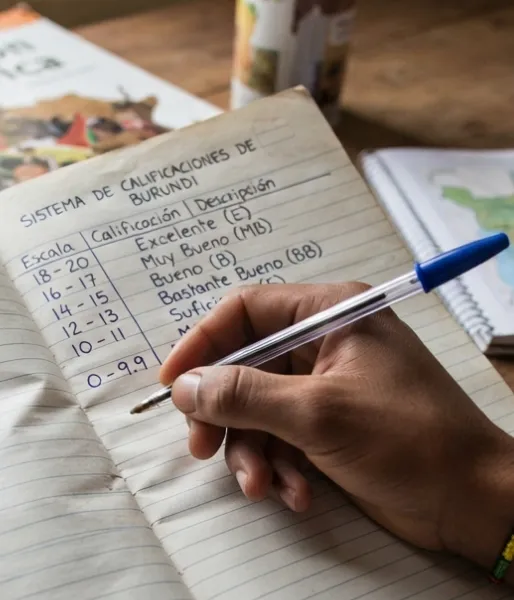 ica
SISTEMA DE CALIFICACIONES DE
BURUNDI
Escala Calificación Descripción
18-20 Excelente (E)
16-17 Muy Bueno (MB)
14-15 Bueno (B)
12-13 Bastante Bueno (BB)
10-11
0-9.9